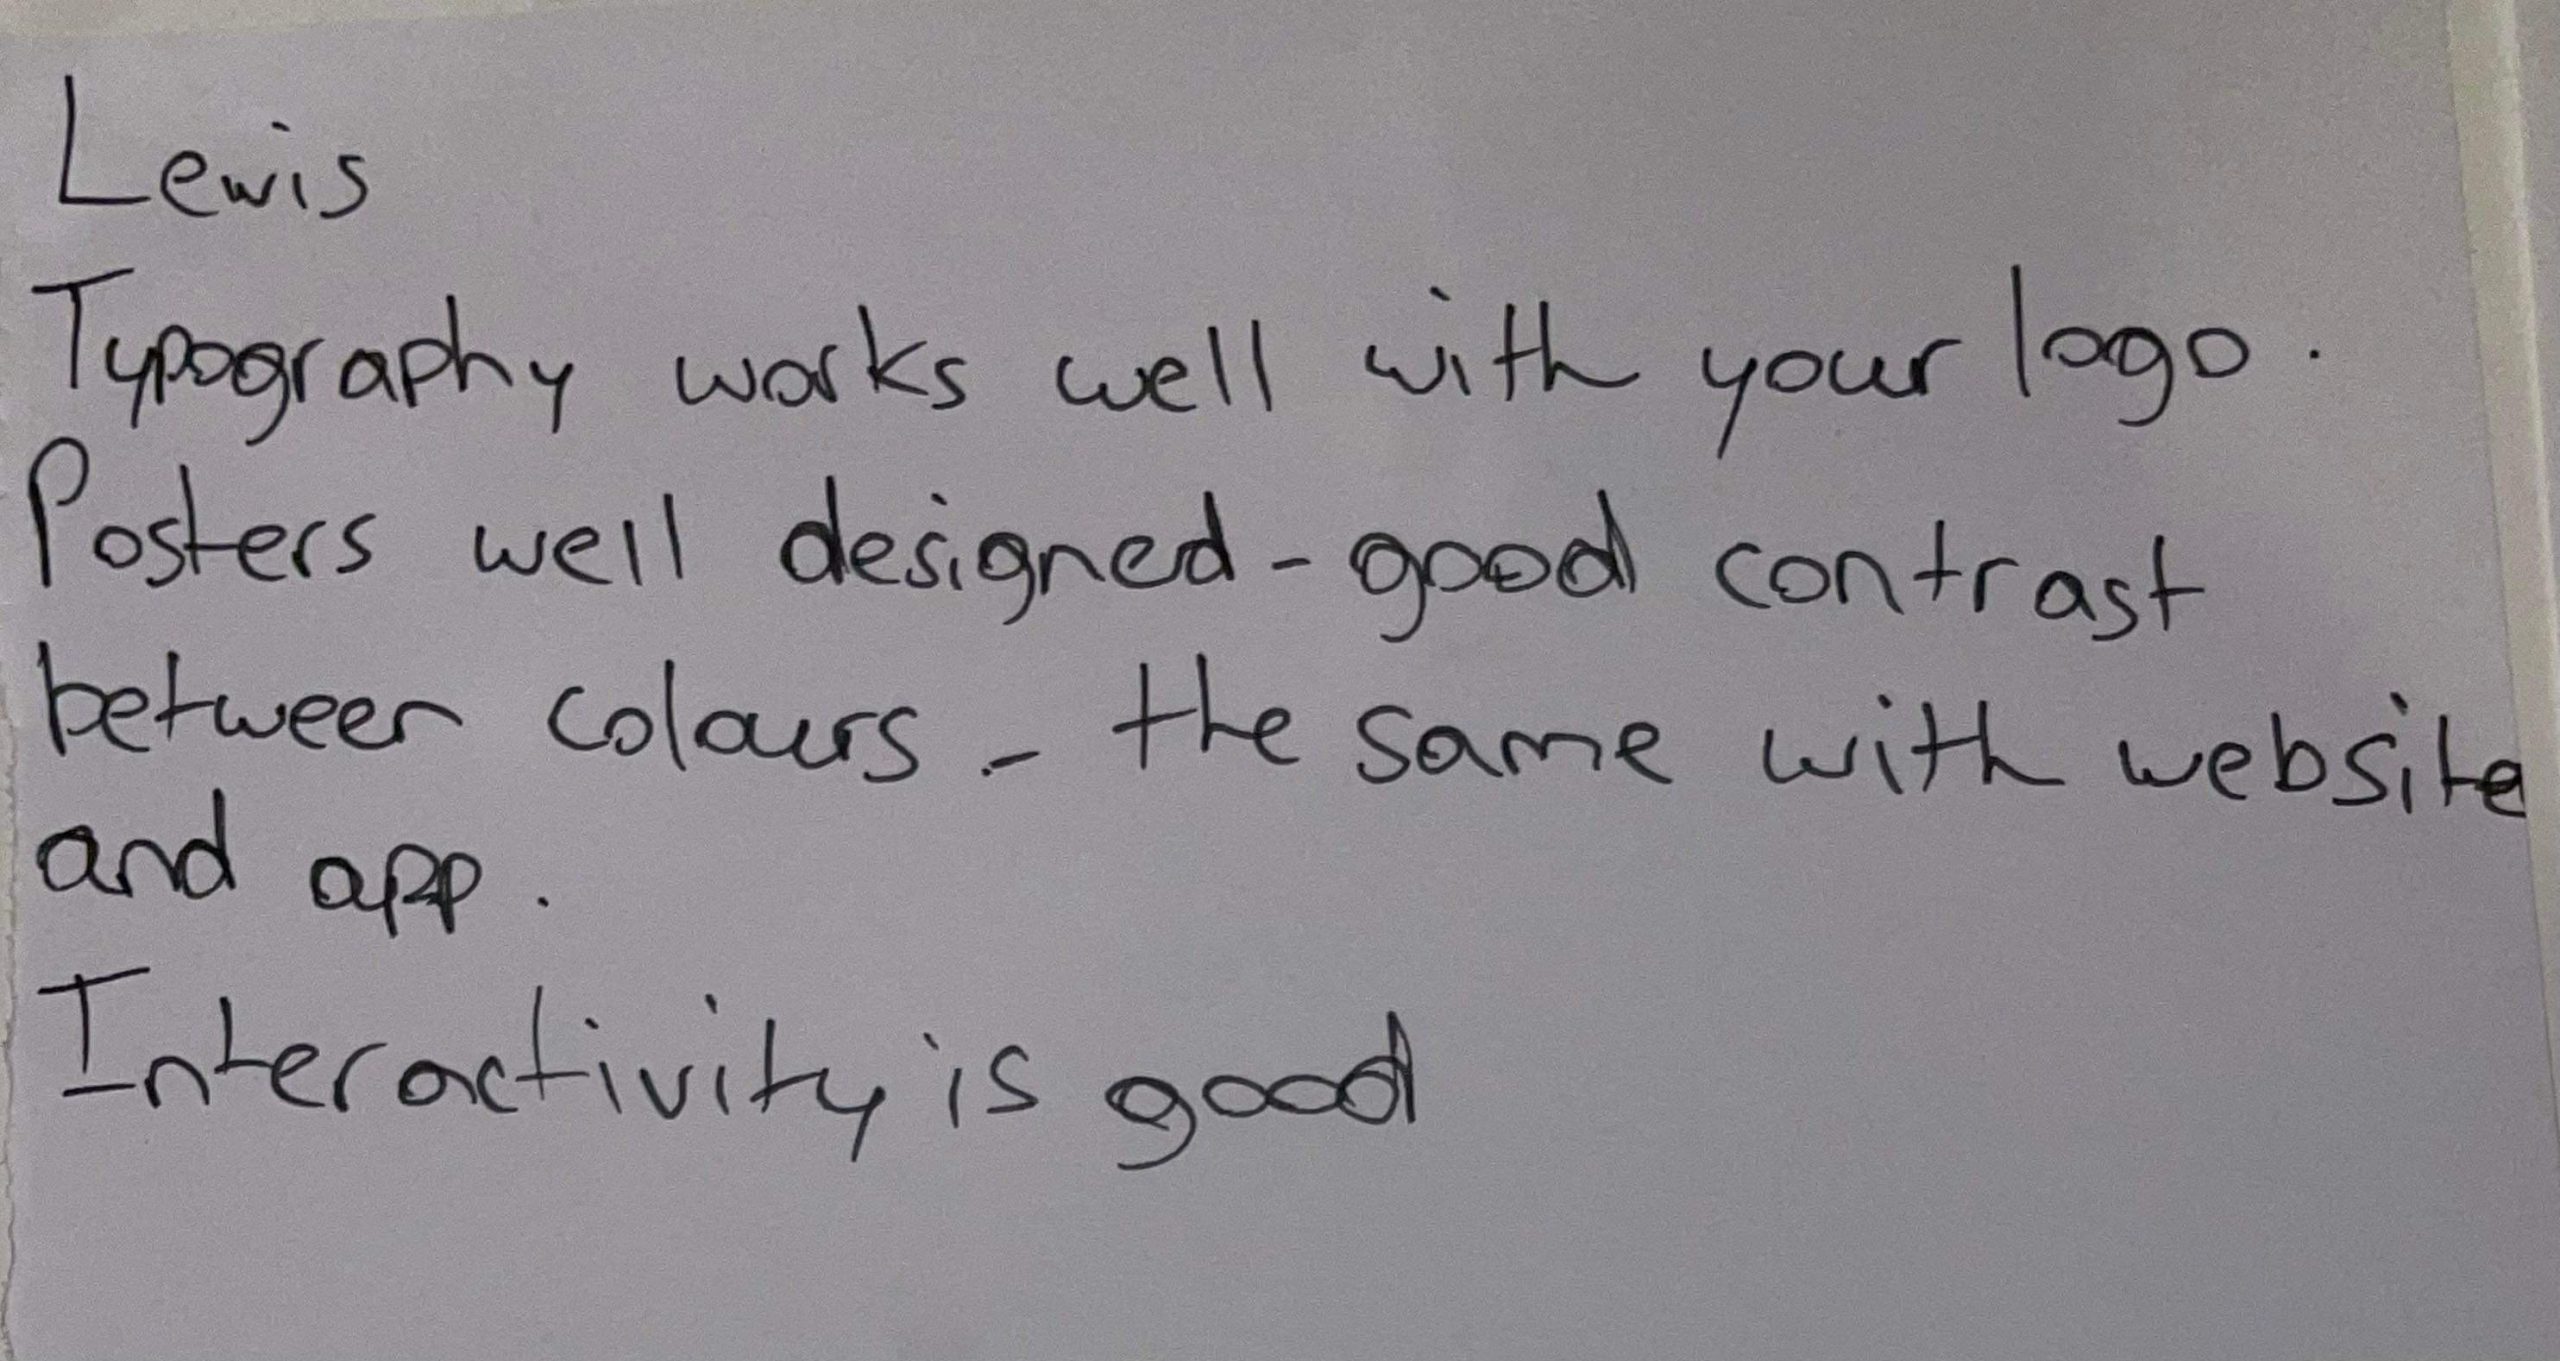 Lewis
Typography works well with your logo.
Posters well designed - good contrast
between colours - the same with website
and app.
Interactivity is good